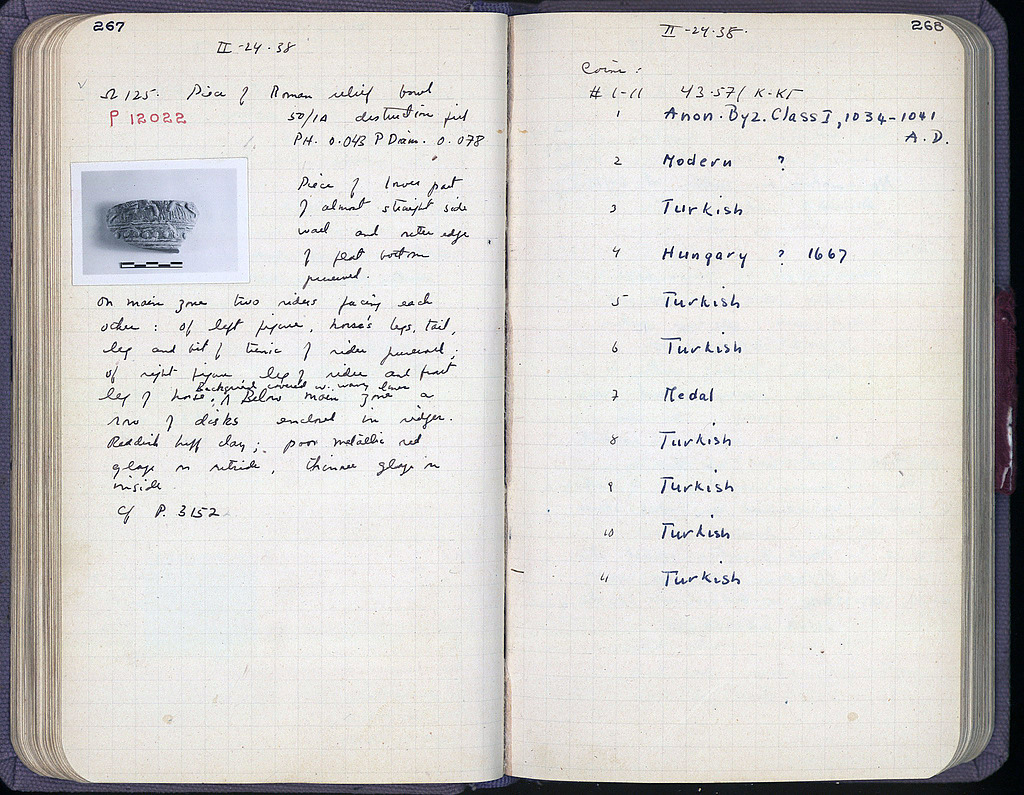 267
II-24-38
Ω 125: Piece of Roman relief bowl
P 12022
50/ΙΑ destruction fill
PH. 0.043 P Diam. 0.078
Piece of lower part
of almost straight side
wall and outer edge
of flat bottom
preserved.
On main zone two riders facing each
other: of left figure, horse's legs, tail,
leg and bit of tunic of rider preserved;
of right figure leg of rider and front
Background covered w. wavy lines
leg of horse; Below main zone a
row of disks enclosed in ridges.
Reddish buff clay; poor metallic red
glaze on outside, thinner glaze on
inside.
Cf P. 3152
268
II-24-38.
Coins:
# 1-11 43-57/ Κ-ΚΓ
1 Anon. Byz. Class I, 1034-1041
A.D.
2 Modern ?
3 Turkish
4 Hungary ? 1667
5 Turkish
6 Turkish
7 Medal
8 Turkish
9 Turkish
10 Turkish
11 Turkish